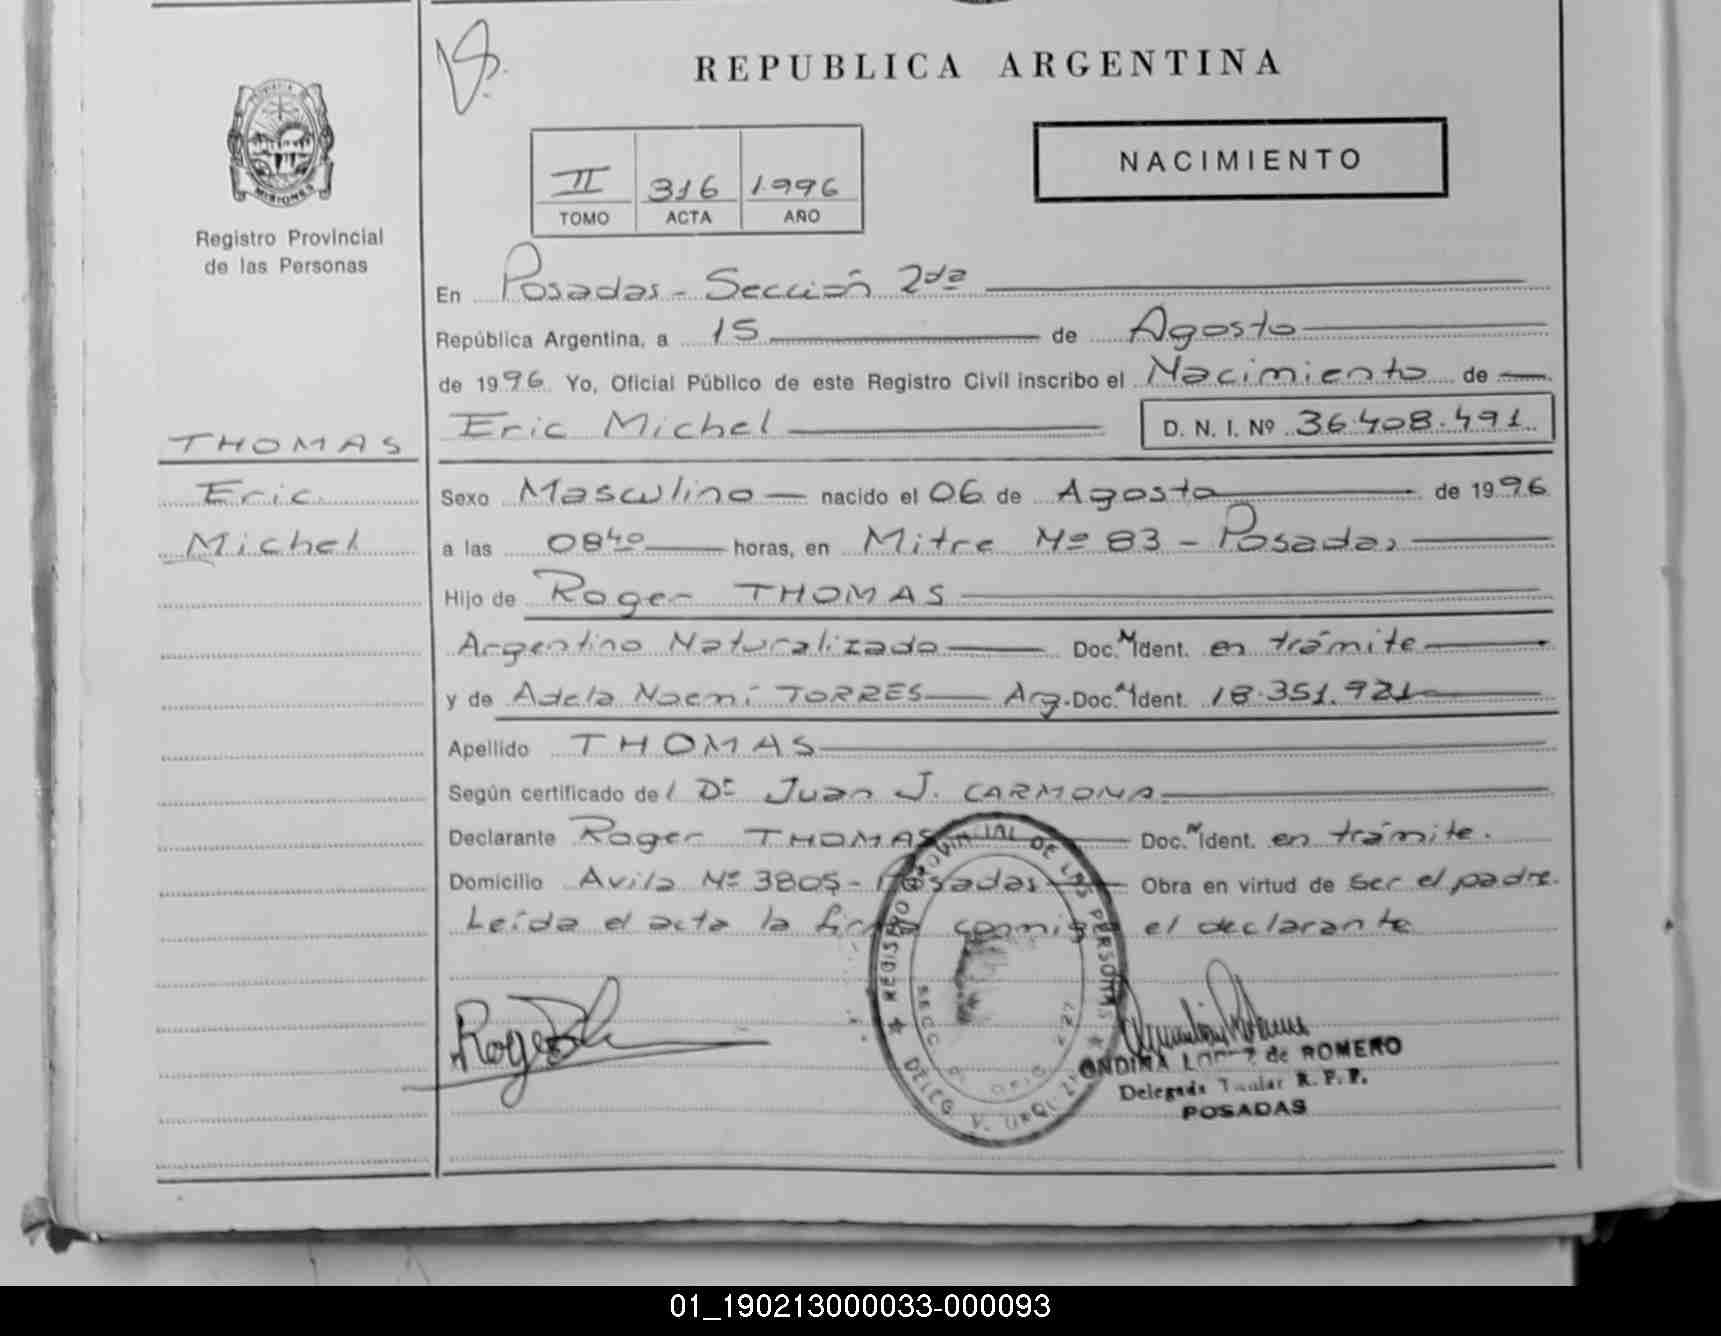 REPUBLICA ARGENTINA
MISIONES
Registro Provincial
de las Personas
NACIMIENTO
II 316 1996
TOMO ACTA AÑO
En Posadas - Sección 2da
República Argentina, a 15 de Agosto
de 1996 Yo, Oficial Público de este Registro Civil inscribo el Nacimiento de
Eric Michel D. N. I. Nº 36.408.491
THOMAS
Eric
Michel
Sexo Masculino nacido el 06 de Agosto de 1996
a las 0840 horas, en Mitre Nº 83 - Posadas
Hijo de Roger THOMAS
Argentino Naturalizado Doc. N Ident. en trámite
y de Adela Noemi TORRES Arg. Doc. N Ident. 18.351.921
Apellido THOMAS
Según certificado del Dr Juan J. CARMONA
Declarante Roger THOMAS Doc. N Ident. en trámite.
Domicilio Avila Nº 3805 - Posadas Obra en virtud de ser el padre.
Leída el acta la firma conmigo el declarante
Roger
REGISTRO PROVINCIAL DE LAS PERSONAS
SECC
DELEG. V. URQUIZA
ONDINA LOPEZ de ROMERO
Delegada Titular R. P. P.
POSADAS
01_190213000033-000093